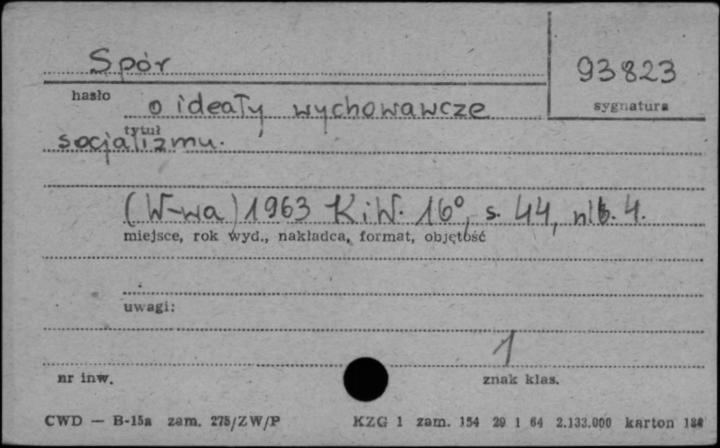 Spór
93823
hasło
sygnatura
o ideały wychowawcze
tytuł
socjalizmu.
(W-wa) 1963 KiW. 16°, s. 44, nlb. 4.
miejsce, rok wyd., nakładca, format, objętość
uwagi:
1
nr inw.
znak klas.
CWD — B-15a zam. 275/ZW/P KZG 1 zam. 154 29 1 64 2.133.000 karton